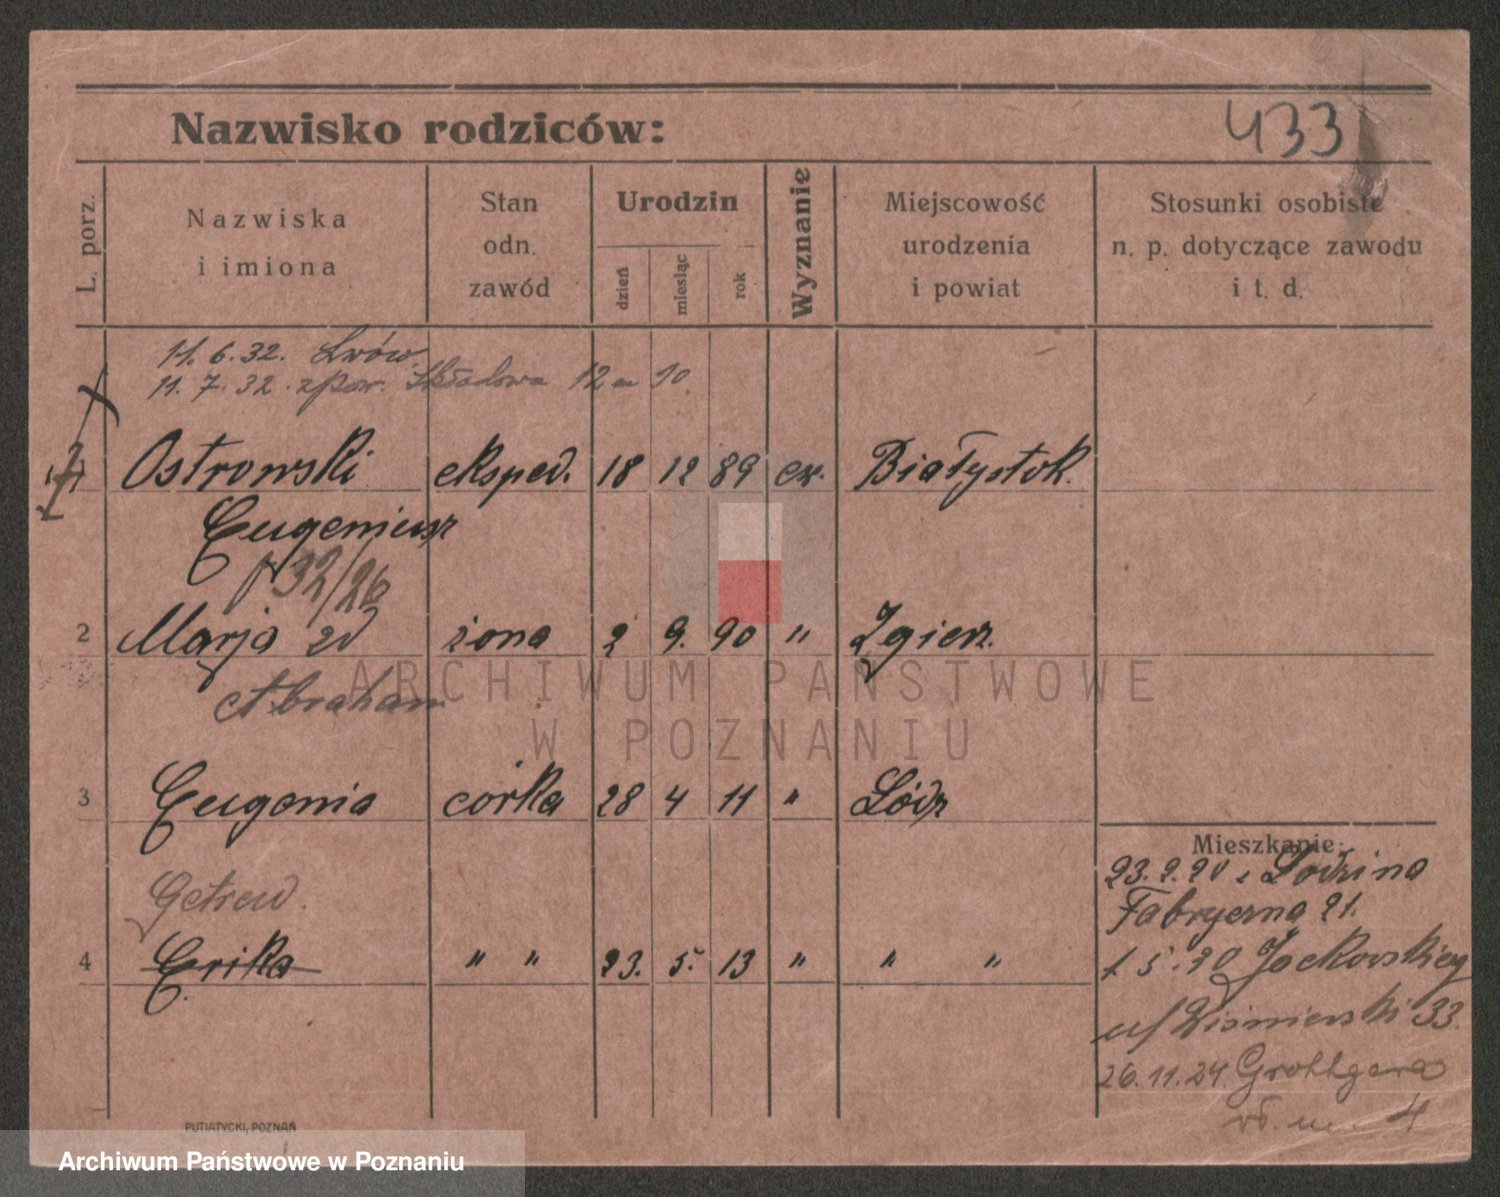 Nazwisko rodziców:
433
L. porz.
Nazwiska
i imiona
Stan
odn.
zawód
Urodzin
dzień
miesiąc
rok
Wyznanie
Miejscowość
urodzenia
i powiat
Stosunki osobiste
n. p. dotyczące zawodu
i t. d.
11. 6. 32. Lwów.
11. 7. 32. z pow. Składowa 12 m 10.
Ostrowski eksped. 18 12 89 ew. Białystok.
Eugeniusz
32/26
2 Marja zd żona 2 9. 90 " Zgierz.
Abraham
3 Eugenia córka 28 4 11 " Łódź
Getrud.
4 Erika " " 23. 5. 13 " " "
Mieszkanie:
23. 2. 20 z Łodzi na
Fabryczna 21.
1. 5. 20
33.
26.11.24 Grottgera
4
PUTIATYCKI, POZNAŃ
ARCHIWUM PAŃSTWOWE
W POZNANIU
Archiwum Państwowe w Poznaniu